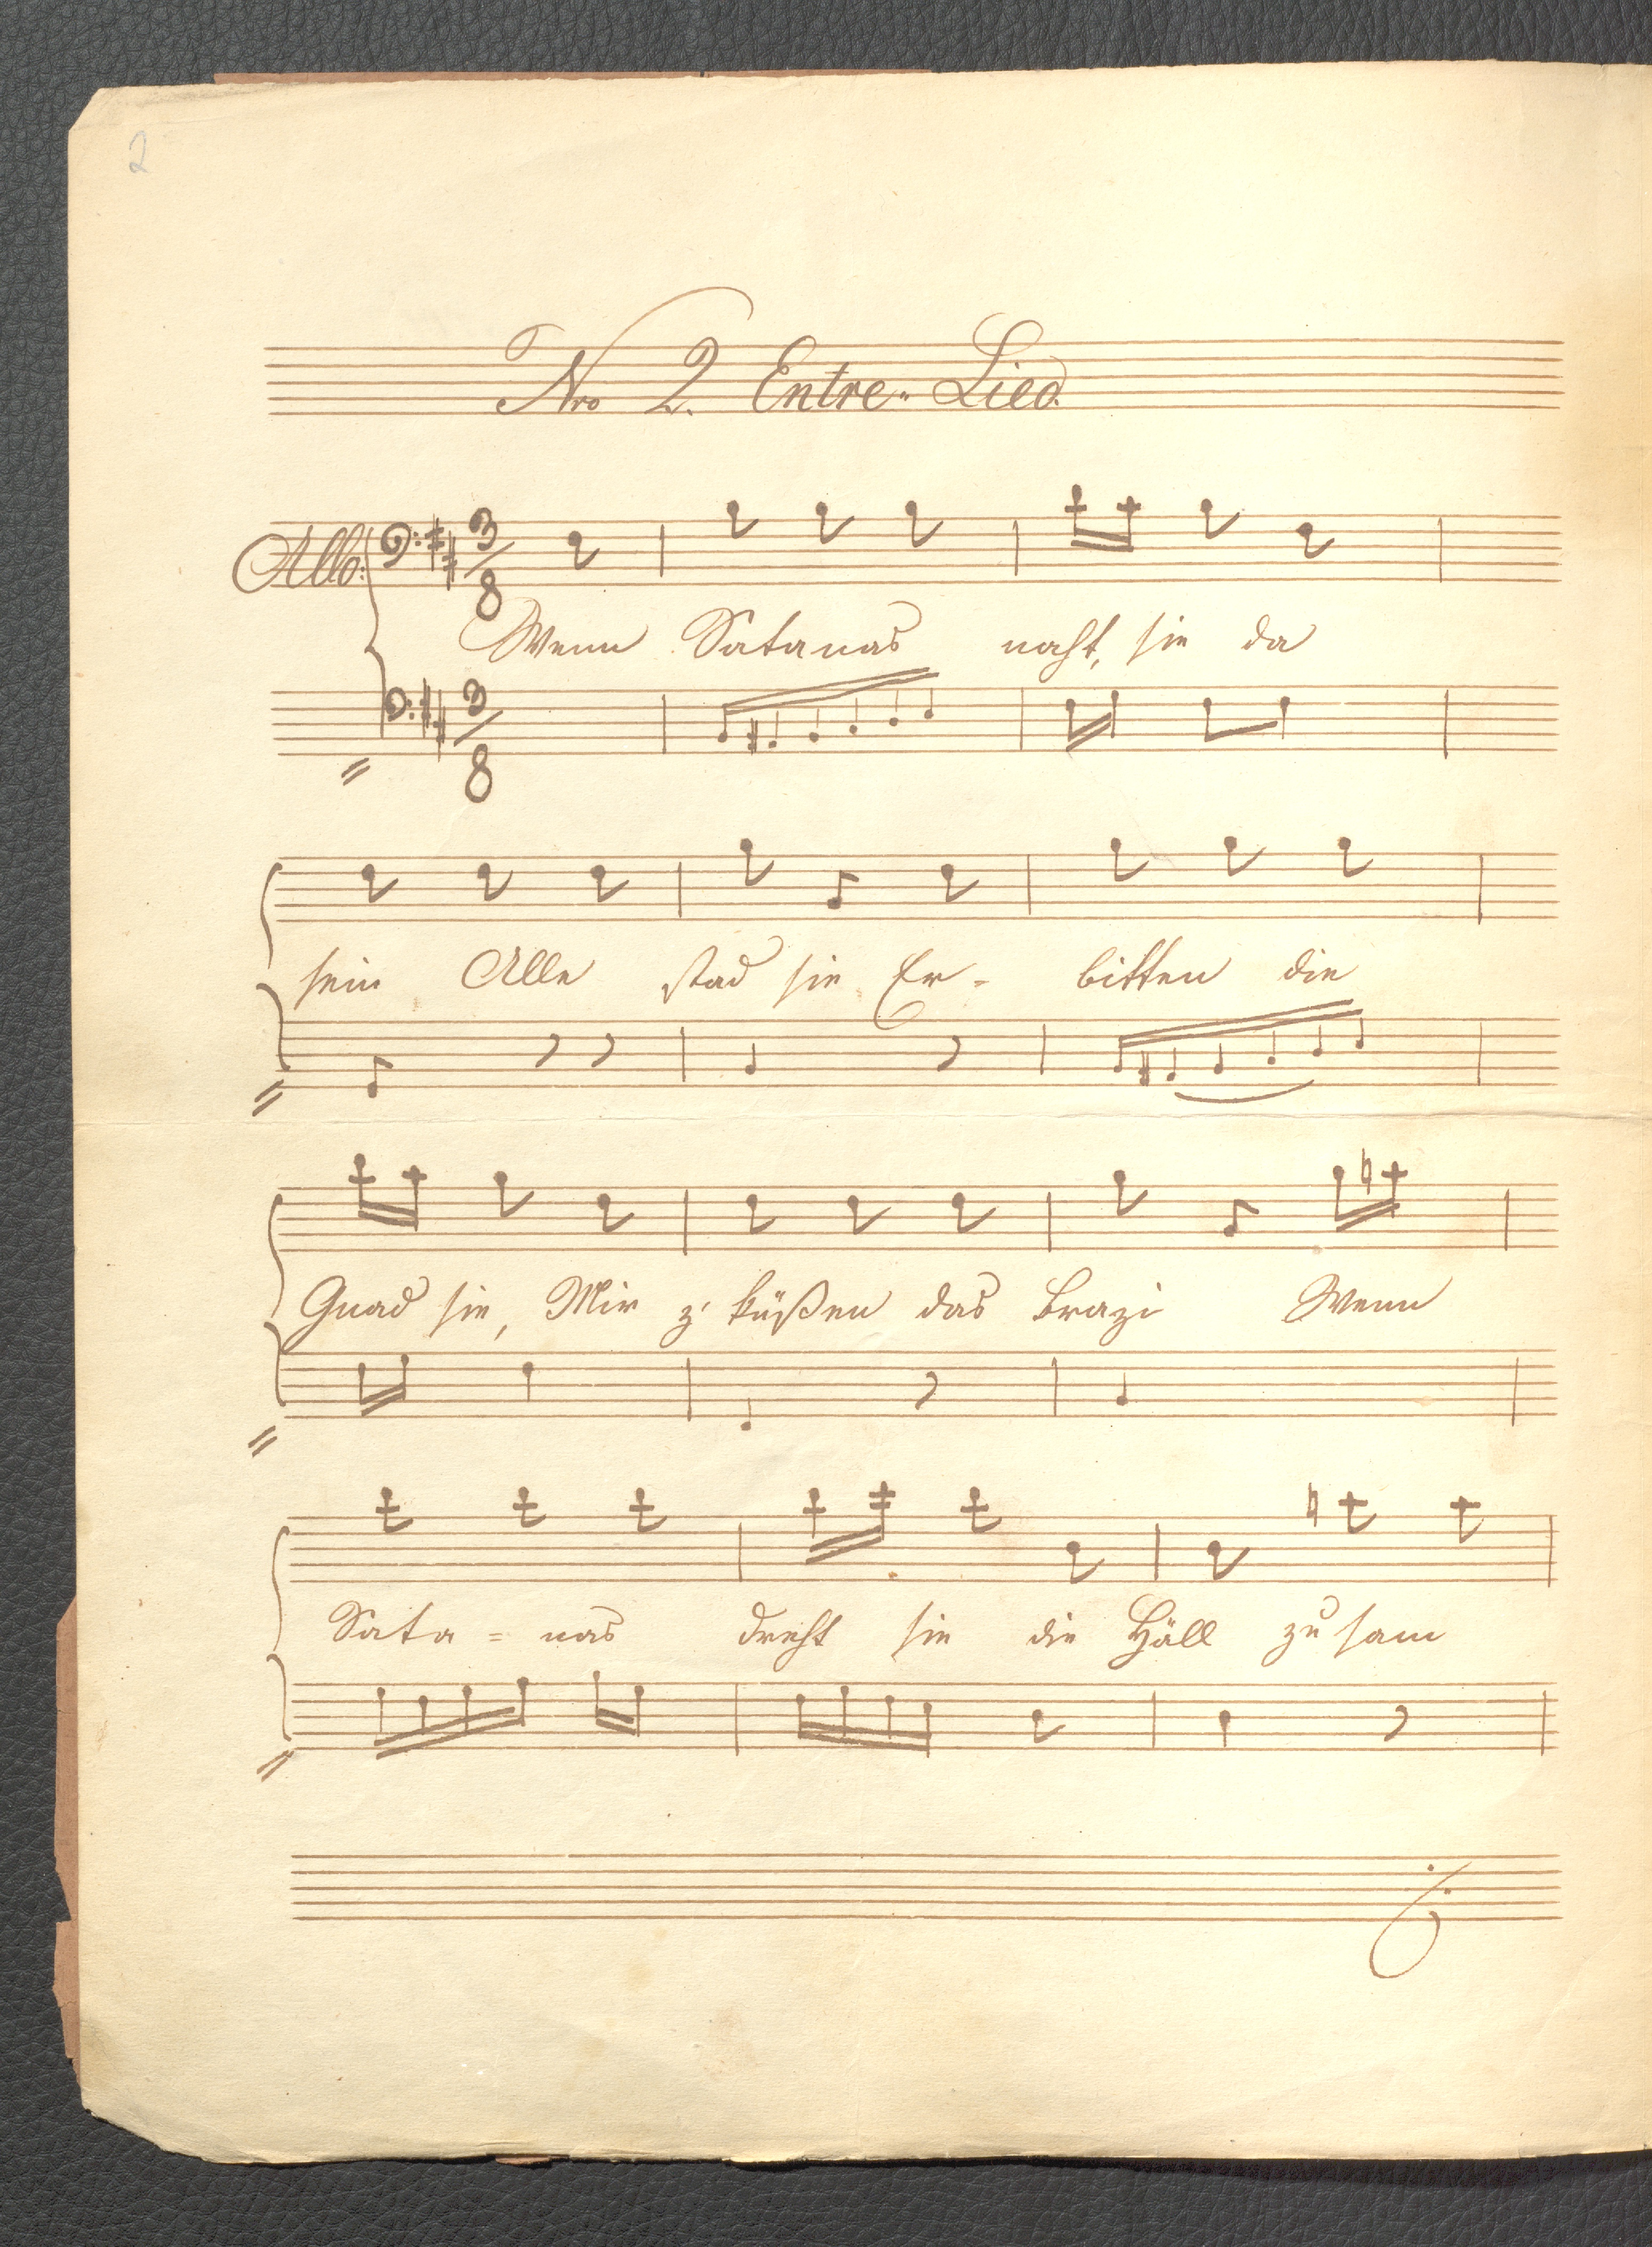 2
Nro 2. Entre-Lied.
Allo:
3/8
Wenn Satanas naht, sie da
3/8
sein Alle stad sie Er-bitten die
Gnad sie, Mir z' küßen das Brazi Wenn
Sata=nas dreht sie die Häll zu sam